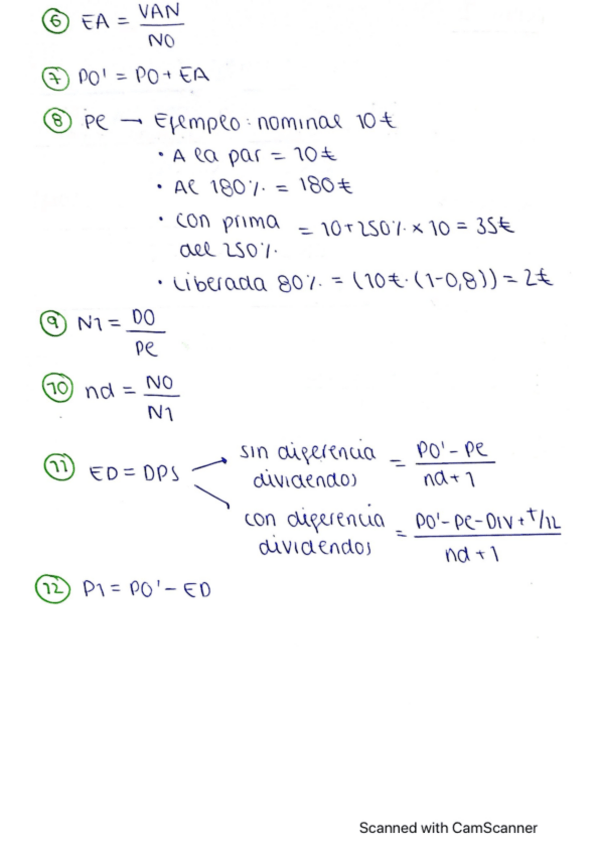 ⑥ EA = VAN / NO
⑦ PO' = PO + EA
⑧ PE → Ejemplo: nominal 10€
• A la par = 10€
• Al 180% = 180€
• con prima del 250% = 10+250% × 10 = 35€
• Liberada 80% = (10€·(1-0,8)) = 2€
⑨ N1 = DO / PE
⑩ nd = NO / N1
⑪ ED = DPS
sin diferencia dividendos = PO' - PE / nd + 1
con diferencia dividendos = PO' - PE - DIV * t/12 / nd + 1
⑫ P1 = PO' - ED
Scanned with CamScanner